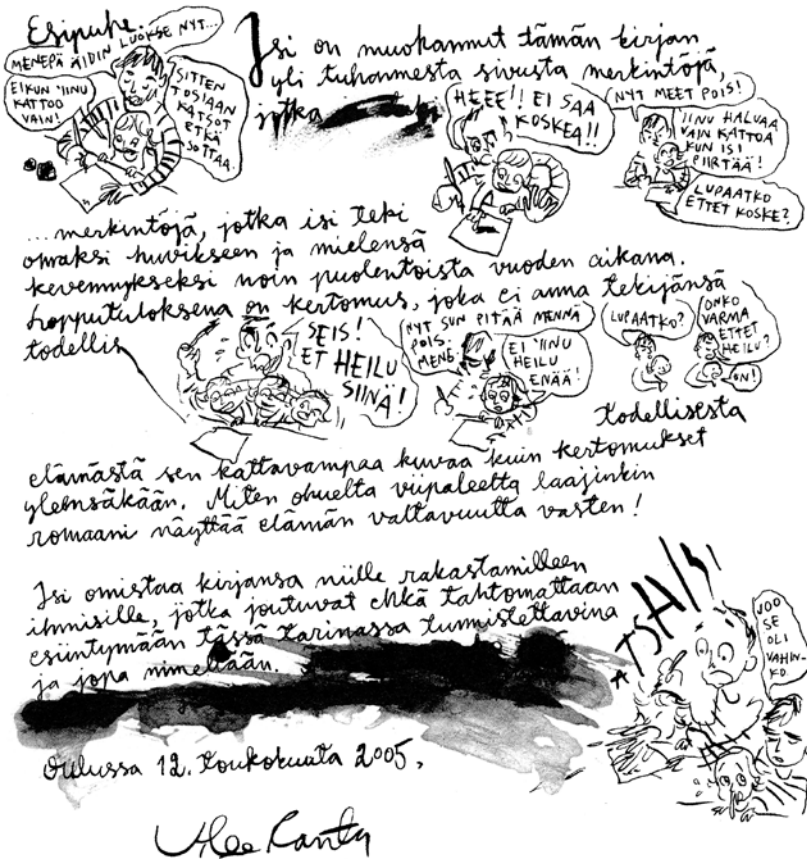 Esipuhe.
MENEPÄ ÄIDIN LUOKSE NYT...
EIKUN IINU
KATTOO
VAIN!
SITTEN
TOSIAAN
KATSOT
ETKÄ
SOTTAA.
Isi on muokannut tämän kirjan
yli tuhannesta sivusta merkintöjä,
jotka isi teki
HEEE!! EI SAA
KOSKEA!!
NYT MEET POIS!
IINU HALUAA
VAIN KATTOA
KUN ISI
PIIRTÄÄ!
LUPAATKO
ETTET KOSKE?
...merkintöjä, jotka isi teki
omaksi huvikseen ja mielensä
kevennykseksi noin puolentoista vuoden aikana.
Lopputuloksena on kertomus, joka ei anna tekijänsä
todellis
SEIS!
ET HEILU
SIINÄ!
NYT SUN PITÄÄ MENNÄ
POIS.
MENE.
EI IINU
HEILU
ENÄÄ!
LUPAATKO?
ONKO
VARMA
ETTET
HEILU?
ON!
todellisesta
elämästä sen kattavampaa kuvaa kuin kertomukset
yleensäkään. Miten ohuelta viipaleelta laajinkin
romaani näyttää elämän valtavuutta vasten!
Isi omistaa kirjansa niille rakastamilleen
ihmisille, jotka joutuvat ehkä tahtomattaan
esiintymään tässä tarinassa tunnistettavina
ja jopa nimeltään.
ATSHIII
JOO
SE
OLI
VAHIN-
KO
Oulussa 12. toukokuuta 2005,